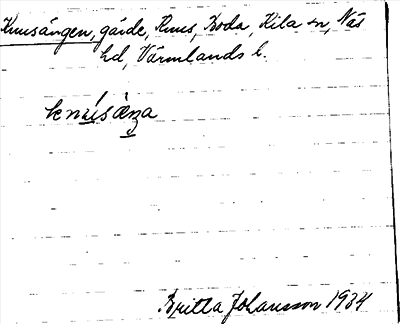 Knusängen, gärde, Knus, Boda, Kila sn, Näs
hd, Värmlands l.
Britta Johansson 1934